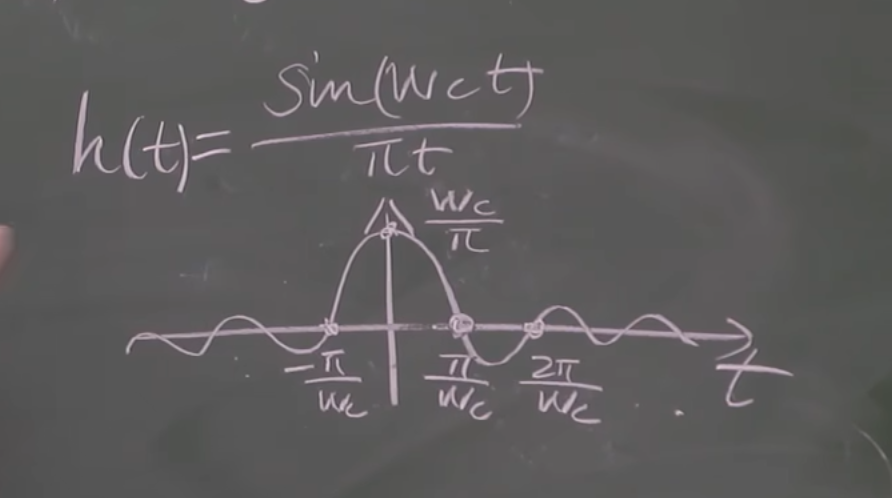 h(t)= sin(Wct) / πt
Wc / π
-π / Wc π / Wc 2π / Wc . . t